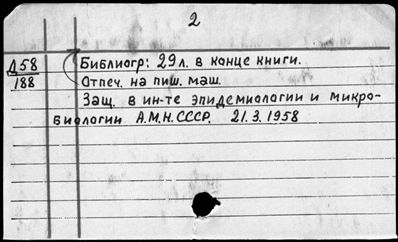 2
Д58 Библиогр: 29 л. в конце книги.
188 Отпеч. на пиш. маш.
Защ. в ин-те эпидемиологии и микро-
биологии А.М.Н. СССР. 21.3.1958